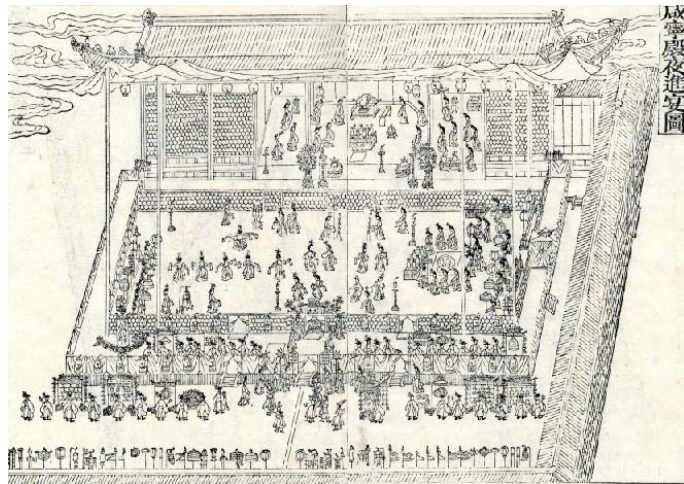 咸寧殿夜進宴圖